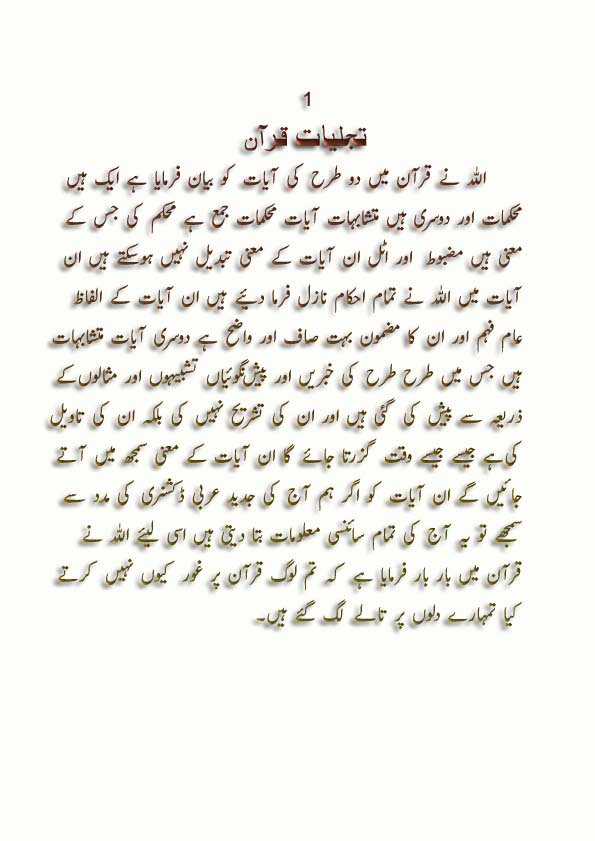 1
تجلیات قرآن
اللہ نے قرآن میں دو طرح کی آیات کو بیان فرمایا ہے ایک ہیں
محکمات اور دوسری ہیں متشابہات آیات محکمات جمع ہے محکم کی جس کے
معنی ہیں مضبوط اور اٹل ان آیات کے معنی تبدیل نہیں ہوسکتے ہیں ان
آیات میں اللہ نے تمام احکام نازل فرما دیئے ہیں ان آیات کے الفاظ
عام فہم اور ان کا مضمون بہت صاف اور واضح ہے دوسری آیات متشابہات
ہیں جس میں طرح طرح کی خبریں اور پیش‌نگوئیاں تشبیہوں اور مثالوں‌کے
ذریعہ سے پیش کی گئی ہیں اور ان کی تشریح نہیں کی بلکہ ان کی تاویل
کی‌ہے جیسے جیسے وقت گزرتا جائے گا ان آیات کے معنی سمجھ میں آتے
جائیں گے ان آیات کو اگر ہم آج کی جدید عربی ڈکشنری کی مدد سے
سمجھے تو یہ آج کی تمام سائنسی معلومات بتا دیتی ہیں اسی لیئے اللہ نے
قرآن میں بار بار فرمایا ہے کہ تم لوگ قرآن پر غور کیوں نہیں کرتے
کیا تمہارے دلوں پر تالے لگ گئے ہیں۔